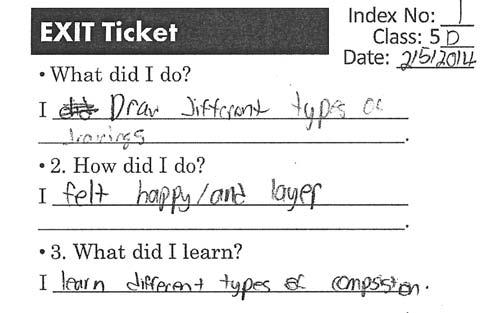 EXIT Ticket
Index No: 1
Class: 5D
Date: 2/5/2014
• What did I do?
I Draw different types of
drawings.
• 2. How did I do?
I felt happy/and layer
.
• 3. What did I learn?
I learn different types of compsiton.